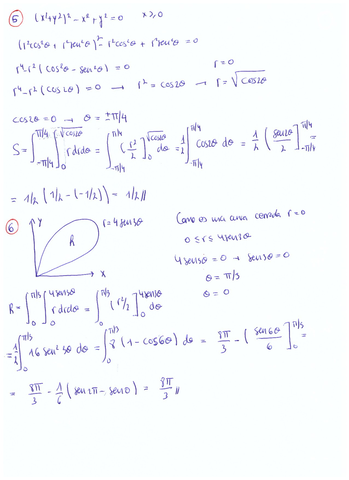 ⑤ (x²+y²)² - x² + y² = 0   x ≥ 0
(r²cos²θ + r²sen²θ)² - r²cos²θ + r²sen²θ = 0
r⁴ - r² (cos²θ - sen²θ) = 0   r = 0
r⁴ - r² (cos2θ) = 0 → r² = cos2θ → r = √cos2θ
cos2θ = 0 → θ = ±π/4
S = ∫_{-π/4}^{π/4} ∫_0^{√cos2θ} r dr dθ = ∫_{-π/4}^{π/4} (r²/2]_0^{√cos2θ} dθ = 1/2 ∫_{-π/4}^{π/4} cos2θ dθ = 1/2 (sen2θ/2]_{-π/4}^{π/4} =
= 1/2 (1/2 - (-1/2)) = 1/2 //
⑥ Y r = 4sen3θ   Como es una curva cerrada r = 0
R   0 ≤ r ≤ 4sen3θ
4sen3θ = 0 → sen3θ = 0
X   θ = π/3
θ = 0
R = ∫_0^{π/3} ∫_0^{4sen3θ} r dr dθ = ∫_0^{π/3} (r²/2]_0^{4sen3θ} dθ
= 1/2 ∫_0^{π/3} 16 sen²3θ dθ = ∫_0^{π/3} 8 (1 - cos6θ) dθ = 8π/3 - (sen6θ/6]_0^{π/3} =
= 8π/3 - 1/6 (sen2π - sen0) = 8π/3 //